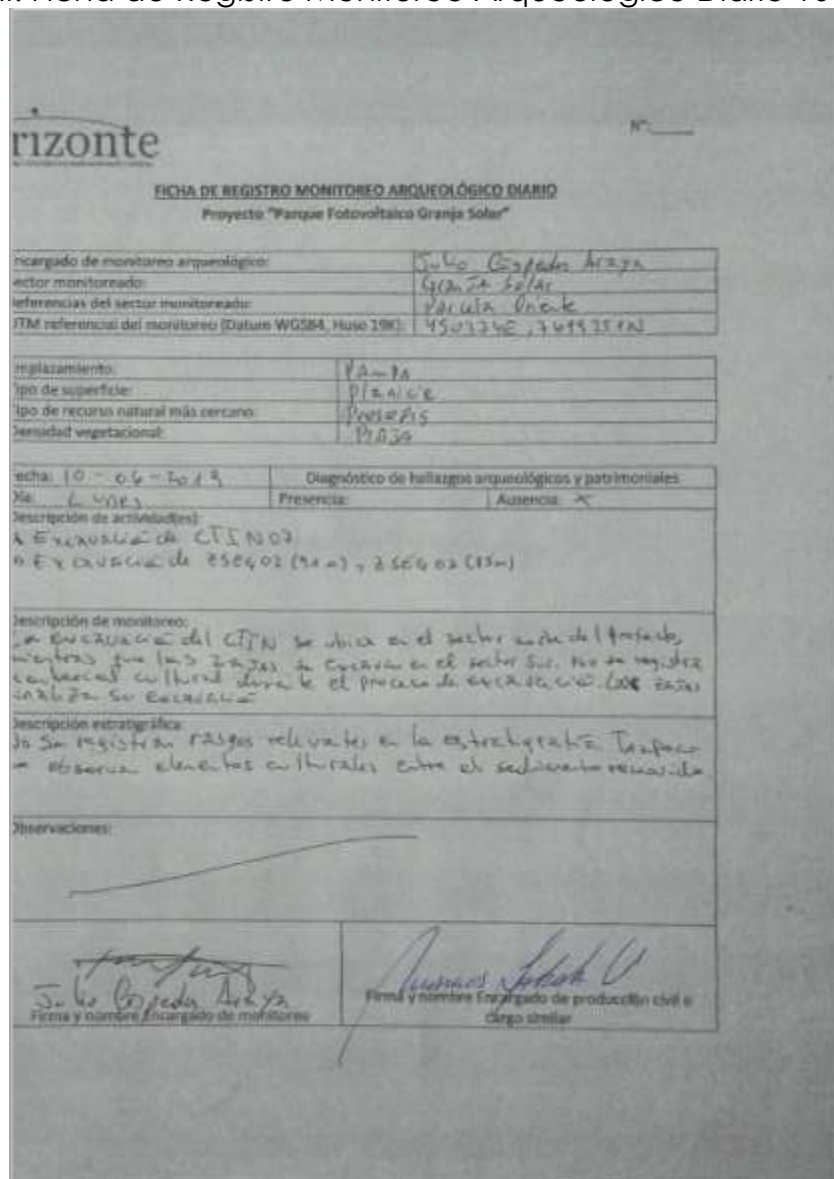 Ficha de Registro Monitoreo Arqueológico Diario
rizonte
N°:
FICHA DE REGISTRO MONITOREO ARQUEOLÓGICO DIARIO
Proyecto "Parque Fotovoltaico Granja Solar"
ncargado de monitoreo arqueológico: Julio Cespedes Araya
ector monitoreado: Granja Solar
eferencias del sector monitoreado: Parcela Oriente
TM referencial del monitoreo (Datum WGS84, Huso 19K):
mplazamiento: PAMPA
ipo de superficie: Planicie
ipo de recurso natural más cercano: Prosopis
ensidad vegetacional: BAJA
echa: 10-06-2019 Diagnóstico de hallazgos arqueológicos y patrimoniales
ía: Lunes Presencia: Ausencia: X
escripción de actividad(es):
Excavación de CTIN02
Excavación de ZSEG02 , ZSEG02 (85m)
escripción de monitoreo:
La excavación del CTIN se ubica en el sector norte del proyecto,
mientras que las zanjas se excavan en el sector Sur. No se registra
material cultural durante el proceso de excavación. zanjas
finaliza su excavación
escripción estratigráfica:
No se registran rasgos relevantes en la estratigrafía Tampoco
se observa elementos culturales entre el sedimento removido
Observaciones:
Julio Cespedes Araya
Firma y nombre Encargado de monitoreo
Firma y nombre Encargado de producción civil o
cargo similar